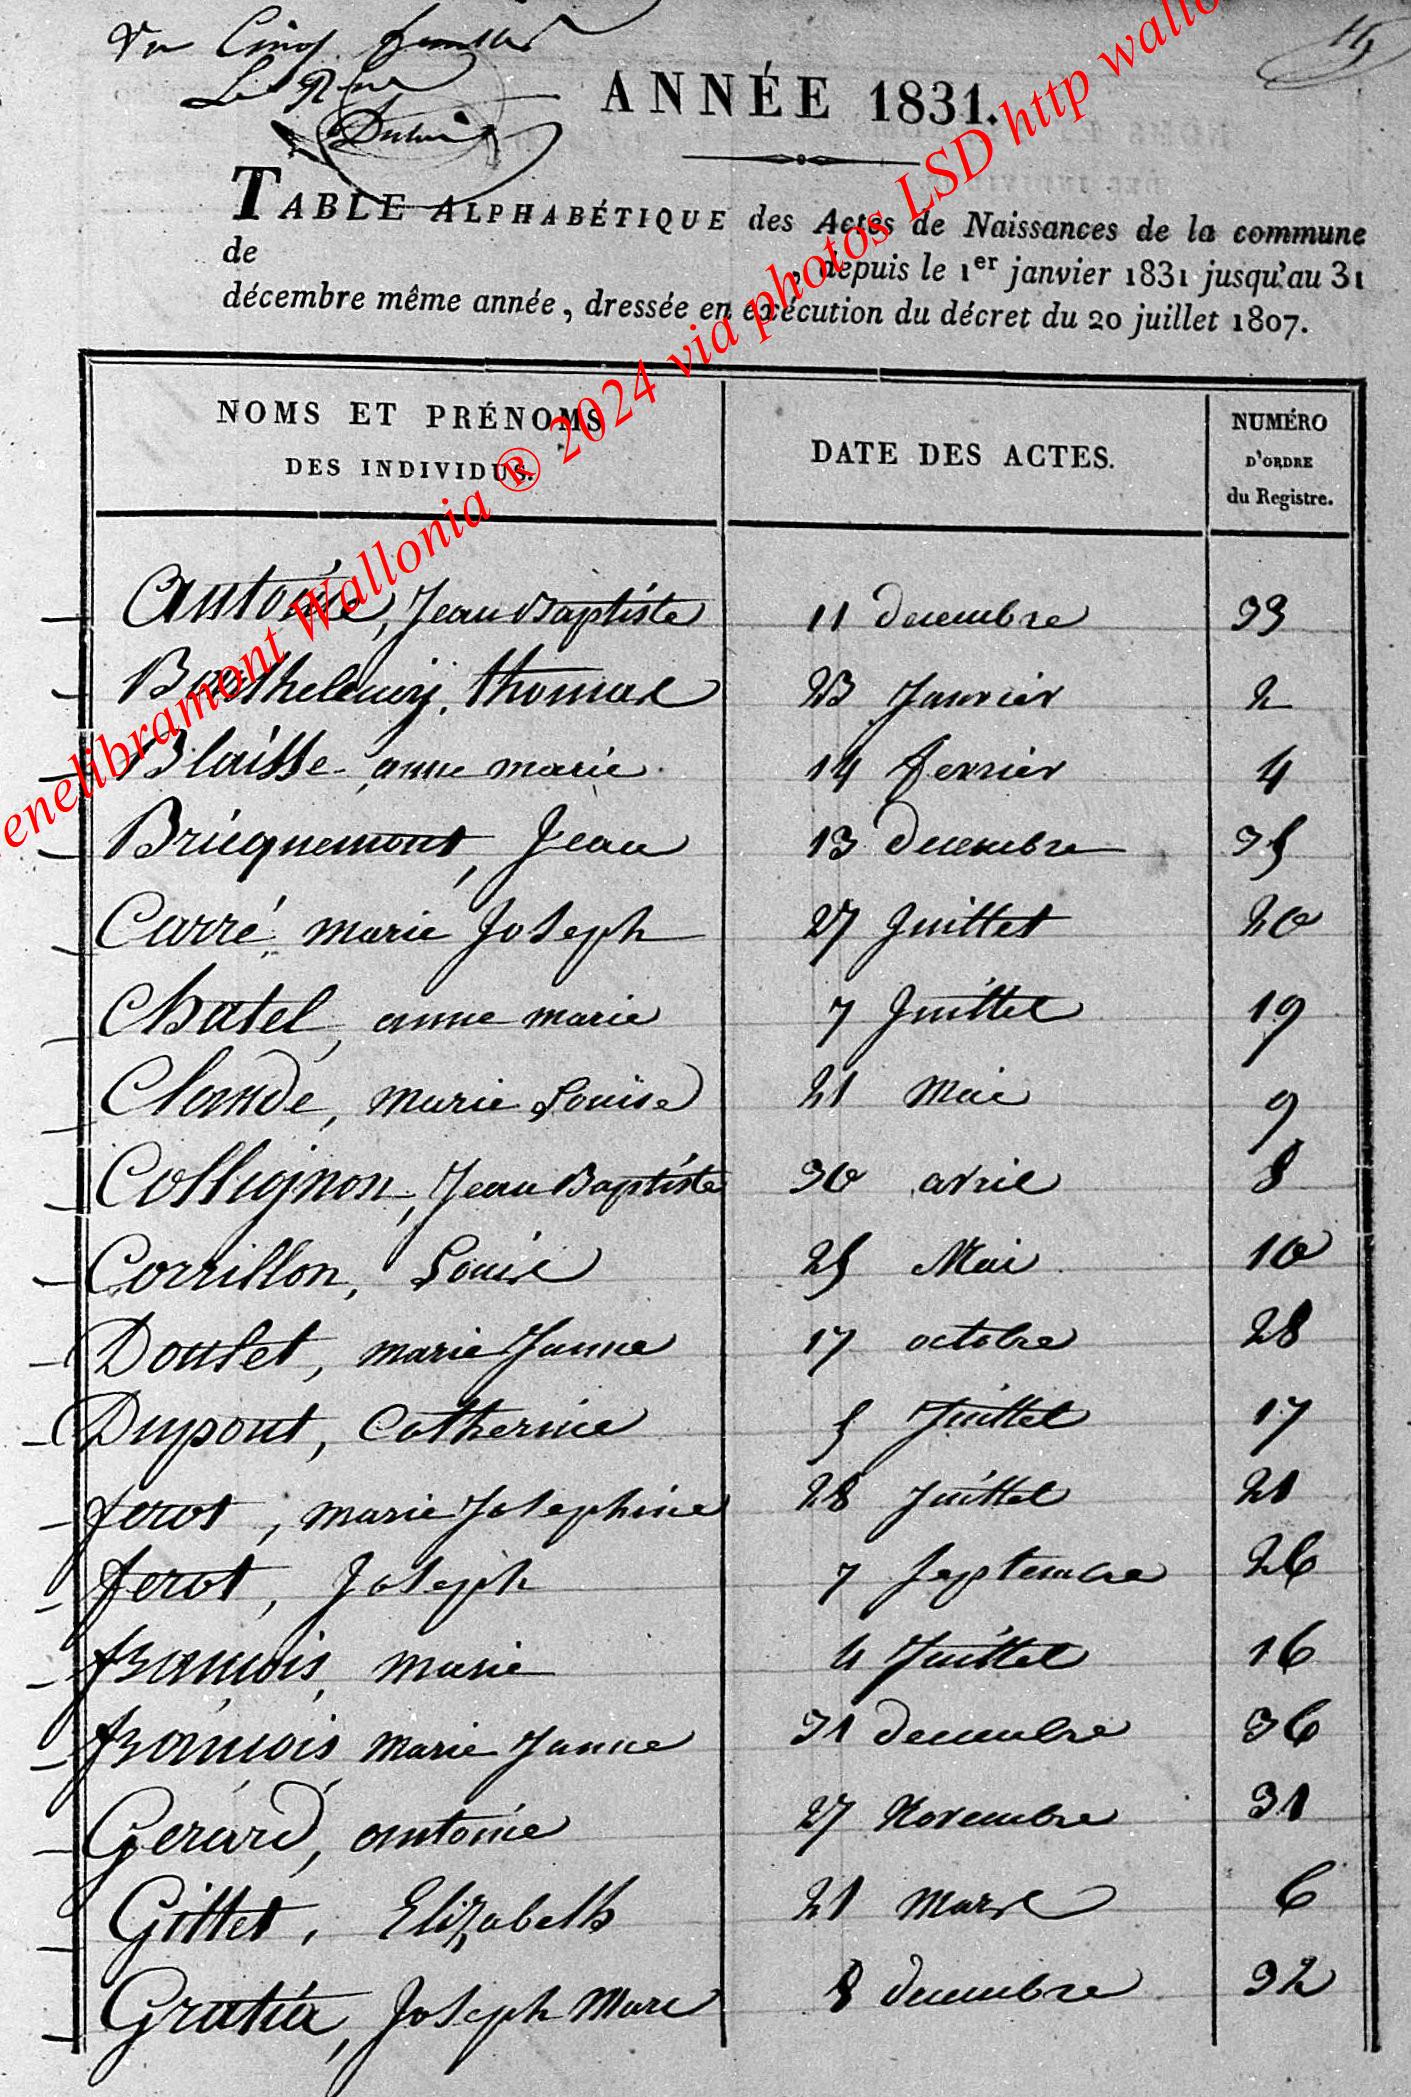 ANNÉE 1831.
TABLE ALPHABÉTIQUE des Actes de Naissances de la commune
de , depuis le 1er janvier 1831 jusqu'au 31
décembre même année, dressée en exécution du décret du 20 juillet 1807.
NOMS ET PRÉNOMS
DES INDIVIDUS.
DATE DES ACTES.
NUMÉRO
D'ORDRE
du Registre.
Antoine, Jean Baptiste 11 decembre 33
Barthelemy, thomas 23 Janvier 2
Blaisse anne marie 14 fevrier 4
Bricquemont, Jean 13 decembre 35
Carré marie Joseph 27 Juillet 20
Chatel, anne marie 7 Juillet 19
Claude, marie Louise 21 Mai 9
Collignon, Jean Baptiste 30 avril 8
Corrillon, Louise 25 Mai 10
Doulet, marie Janne 17 octobre 28
Dupont, Catherine 5 Juillet 17
ferot, marie Josephine 28 Juillet 21
ferot, Joseph 7 Septembre 26
francois, marie 4 Juillet 16
francois marie Janne 31 decembre 36
Gerard, antoine 27 Novembre 31
Gillet, Elizabeth 21 Mars 6
Gratia, Joseph Marc 8 decembre 32
enelibramont Wallonia ® 2024 via photos LSD http wallo